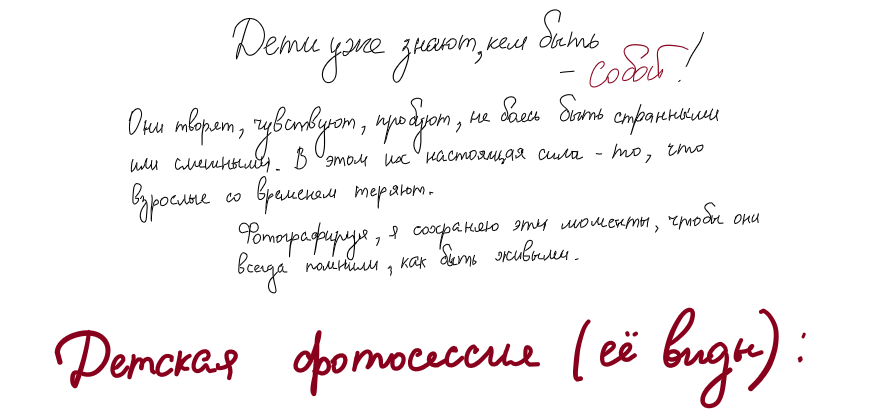 Дети уже знают, кем быть
- собой!
Они творят, чувствуют, пробуют, не боясь быть странными
или смешными. В этом их настоящая сила - то, что
взрослые со временем теряют.
Фотографируя, я сохраняю эти моменты, чтобы они
всегда помнили, как быть живыми.
Детская фотосессия (её виды):